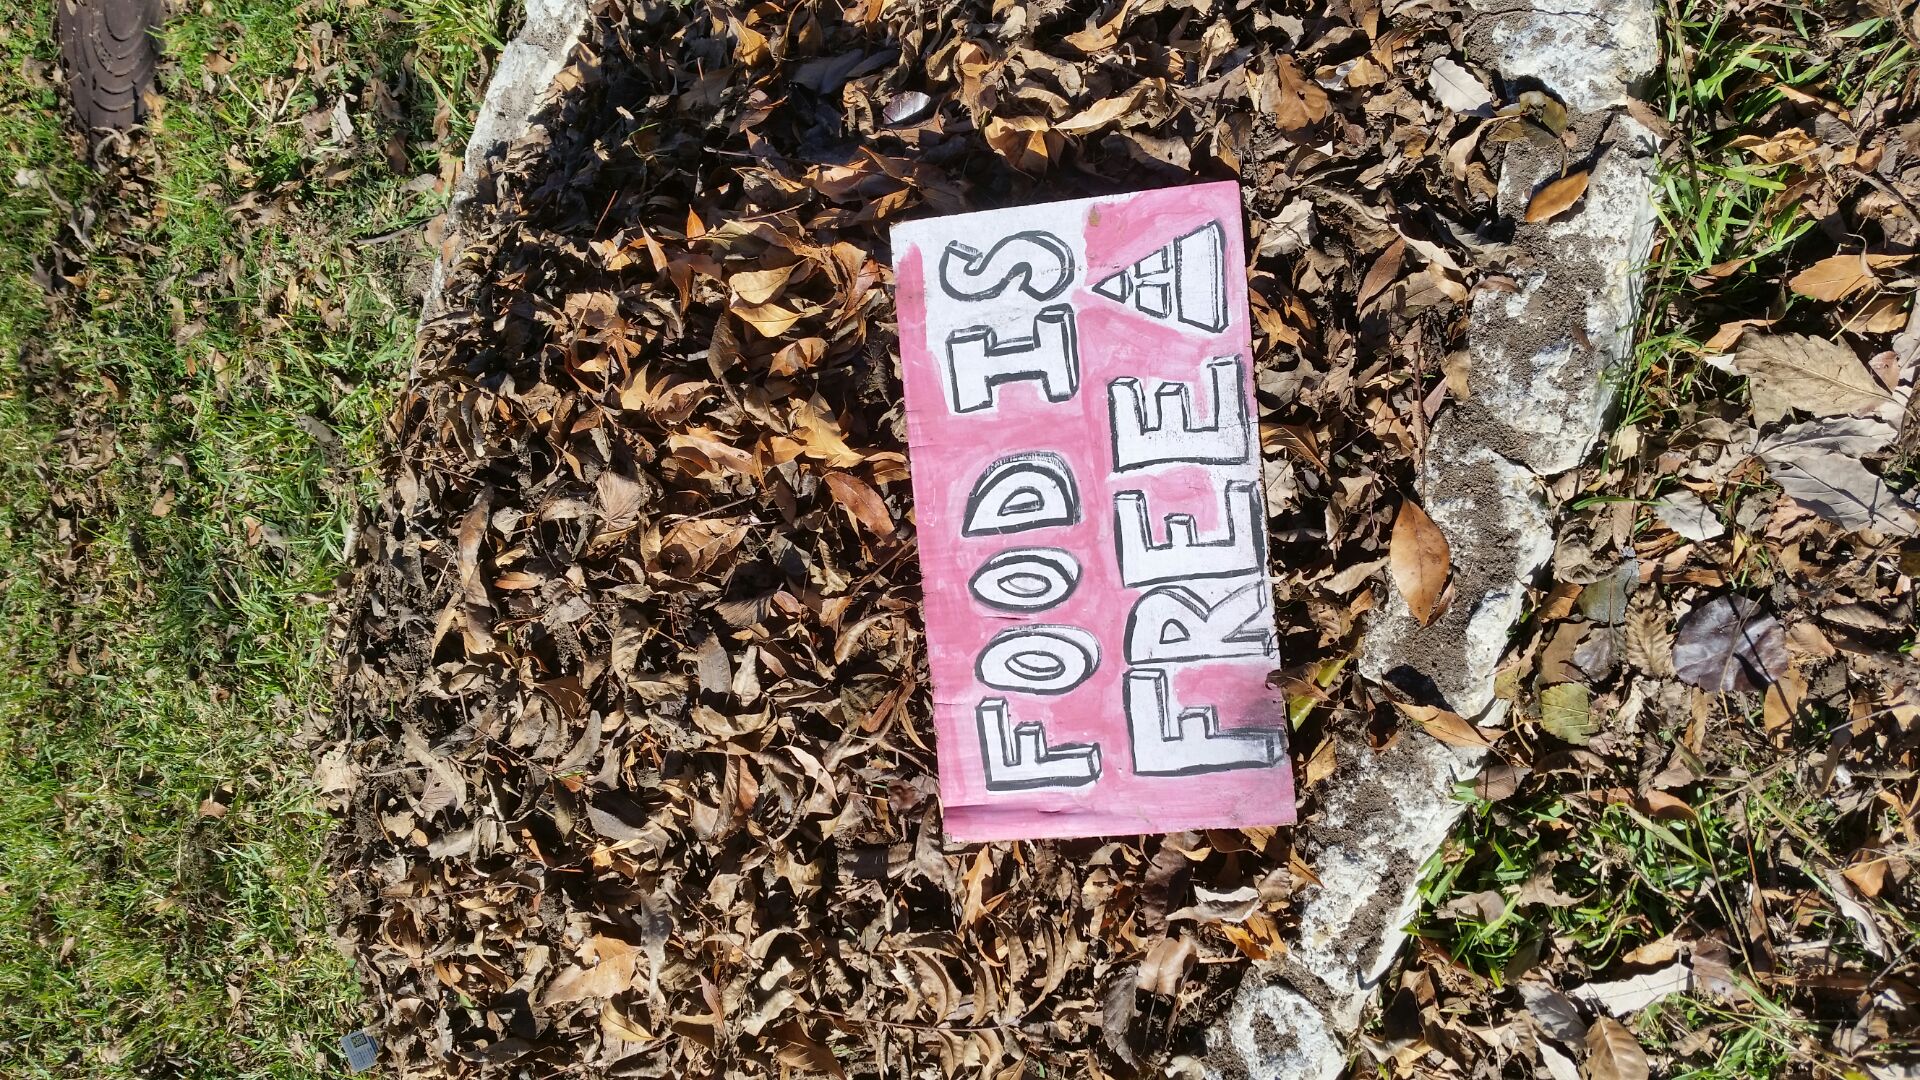 FOOD IS
FREE